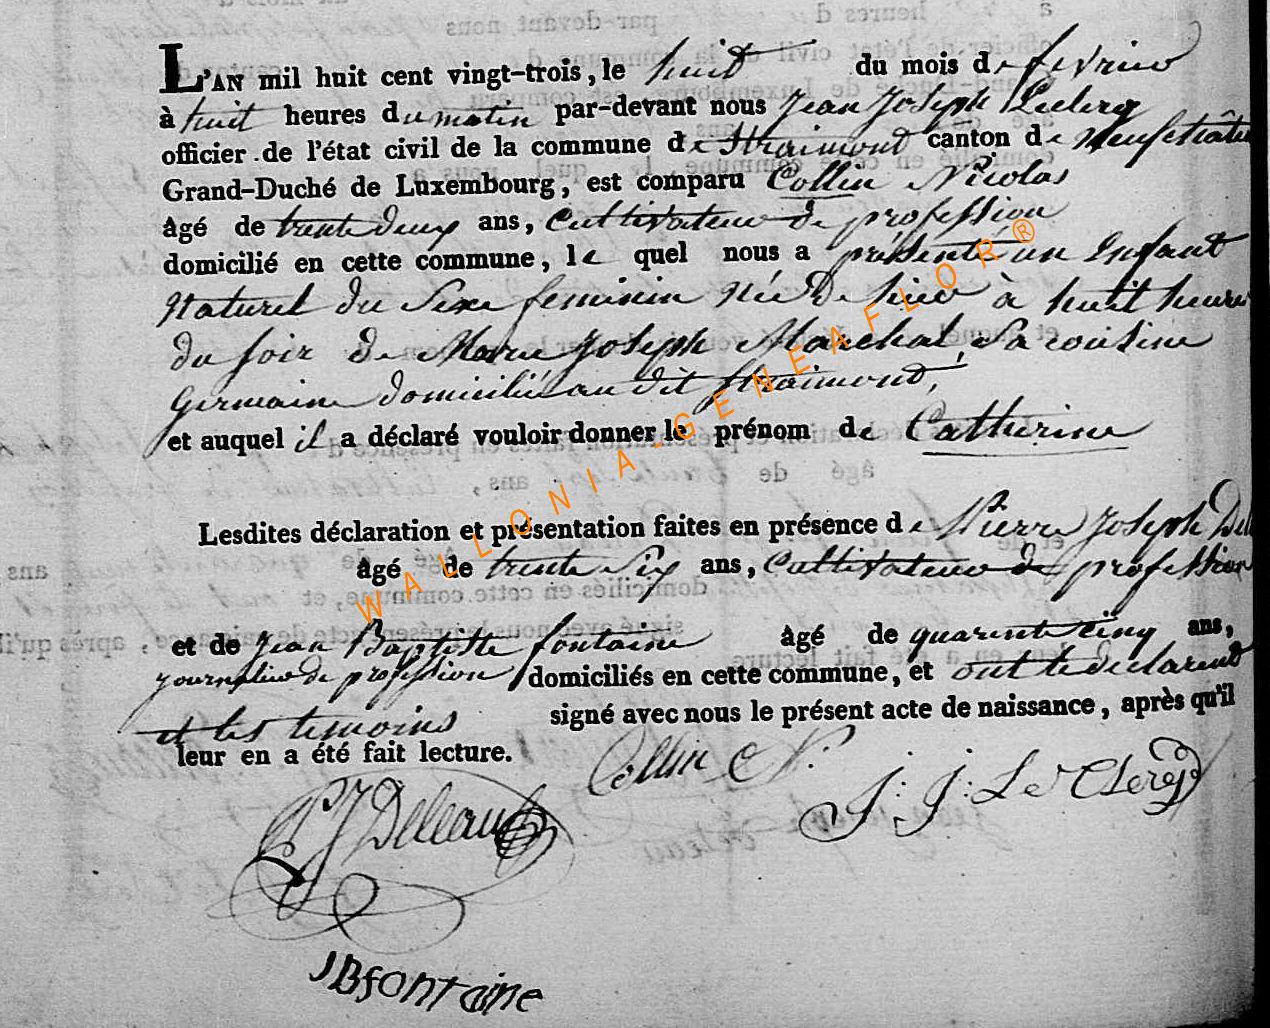 L'AN mil huit cent vingt-trois, le huit du mois de fevrier
à huit heures du matin par-devant nous Jean Joseph Leclerq
officier de l'état civil de la commune de Straimont canton de Neufchâteau
Grand-Duché de Luxembourg, est comparu Collin Nicolas
âgé de trente deux ans, Cultivateur de profession
domicilié en cette commune, le quel nous a présenté un Enfant
Naturel du Sexe feminin Née De hier à huit heures
du soir de Marie Joseph Marchal, Sa cousine
Germaine domiciliée au dit Straimont,
et auquel il a déclaré vouloir donner le prénom de Catherine
Lesdites déclaration et présentation faites en présence de Pierre Joseph
âgé de trente Six ans, Cultivateur de profession
et de Jean Baptiste fontaine âgé de quarente cinq ans,
journalier de profession domiciliés en cette commune, et ont le declarent
et les temoins signé avec nous le présent acte de naissance, après qu'il
leur en a été fait lecture.
Collin N.
J: J: Le Clerq
PJ Deleau
JBfontaine
WALLONIA-GENEAFLOR®